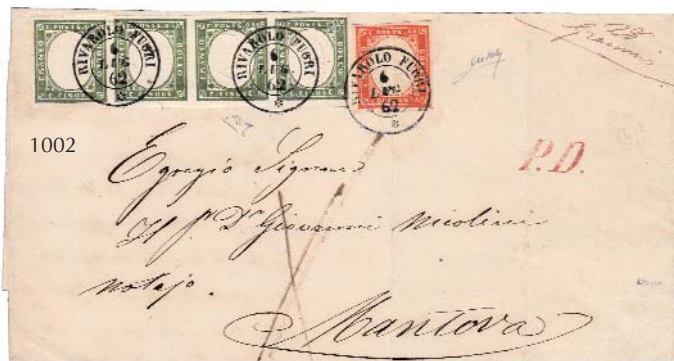 RIVAROLO FUORI
6
LUG.
62
RIVAROLO FUORI
6
LUG.
62
RIVAROLO FUORI
6
LUG.
62
1002
P.D.
Egregio Signore
Il Dr Giovanni Nicolini
notajo.
Mantova